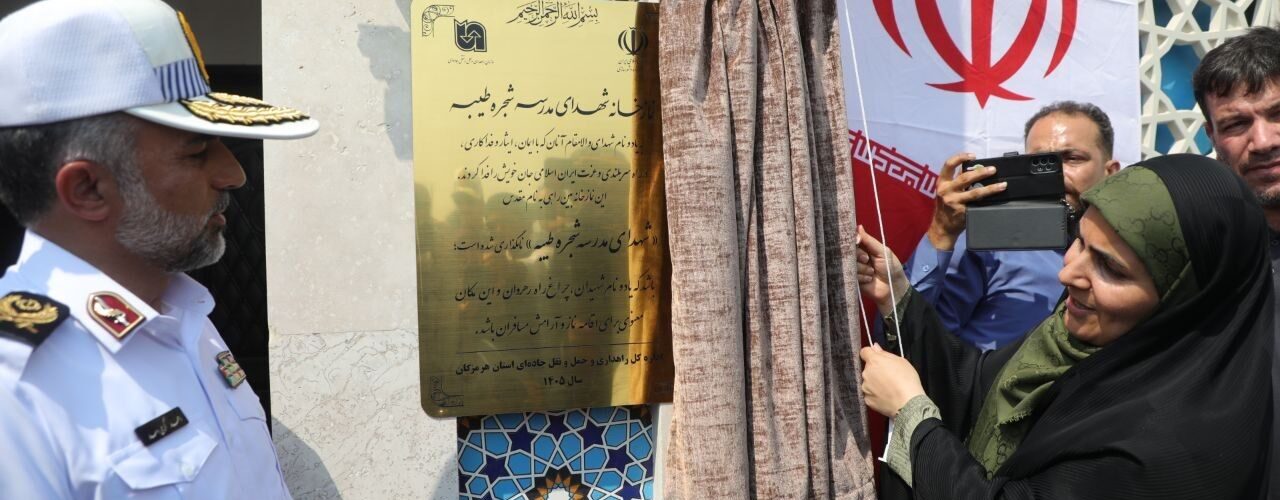 بسم الله الرحمن الرحیم
نمازخانه شهدای مدرسه شجره طیبه
یاد و نام شهدای والامقام آنان که با ایمان، ایثار و فداکاری،
راه سربلندی و عزت ایران اسلامی جان خویش را فدا کردند،
این نمازخانه بین راهی به نام مقدس
« شهدای مدرسه شجره طیبه » نامگذاری شده است؛
باشد که یاد و نام شهیدان، چراغ راه رهروان و این مکان
معنوی برای اقامه نماز و آرامش مسافران باشد.
اداره کل راهداری و حمل و نقل جاده‌ای استان هرمزگان
سال ۱۴۰۵